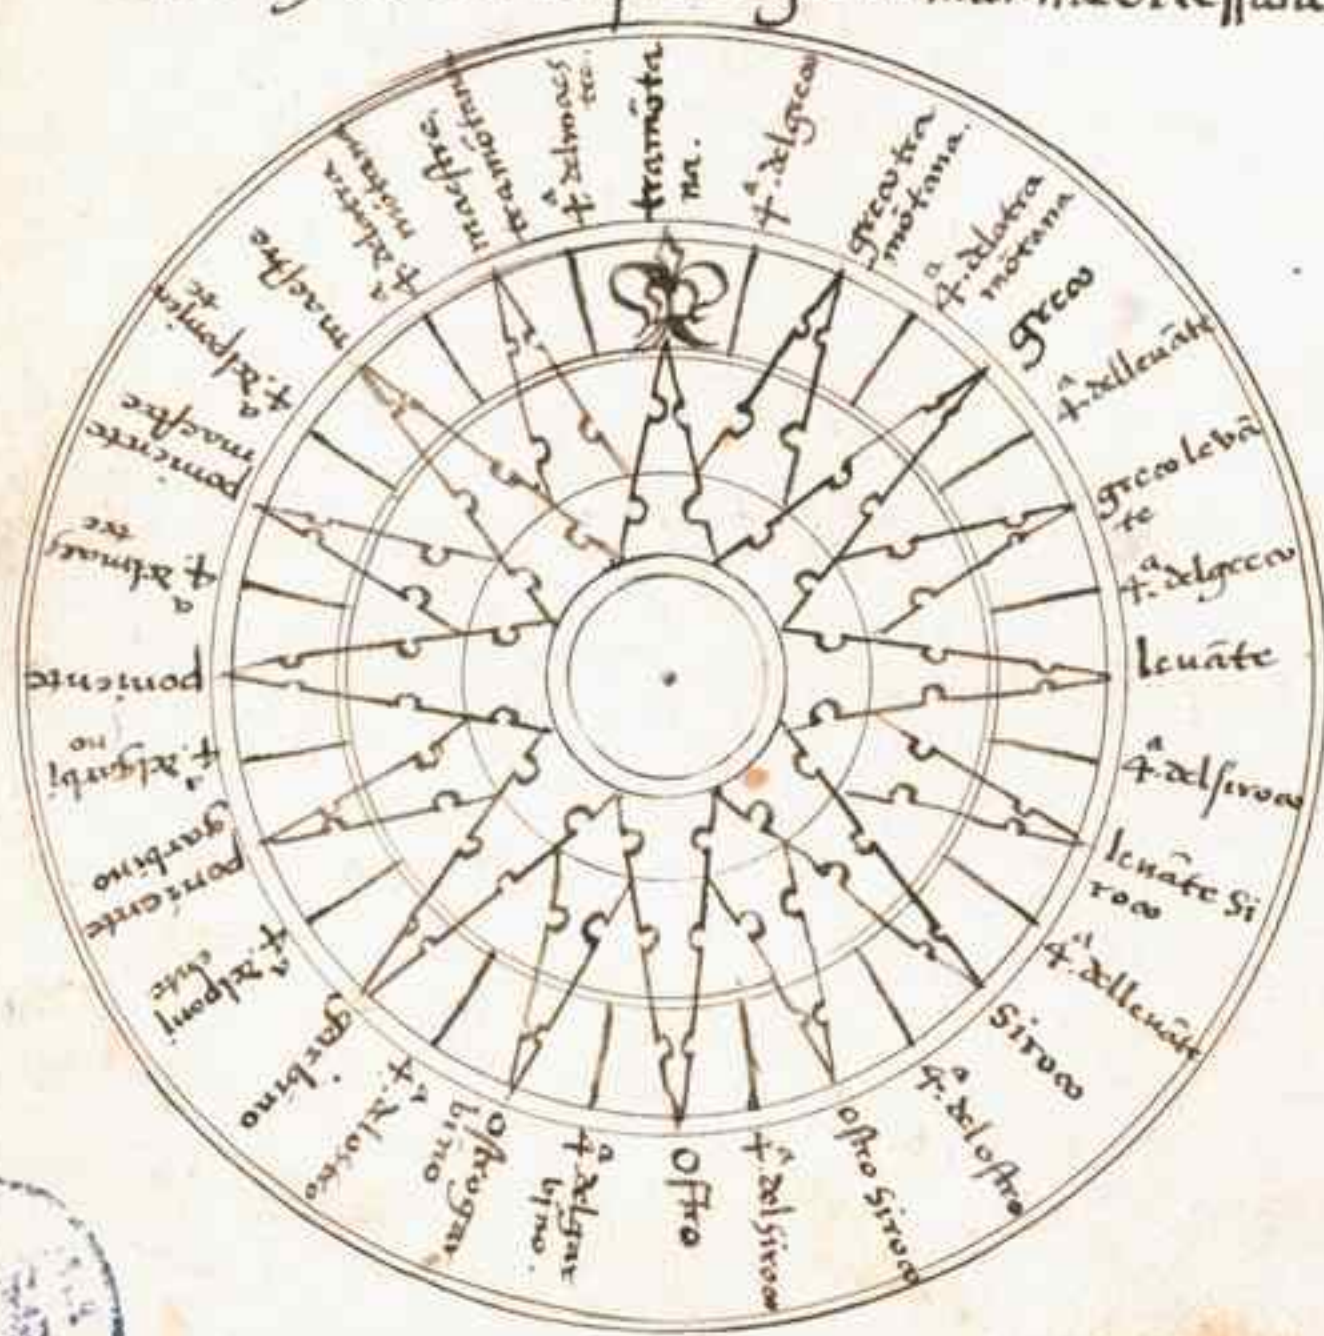 tramõta
na.
4ª. del greco
greco tra
mõtana.
4ª. dela tra
mõtana
greco
4ª. del leuãte
greco levã
te
4ª. del greco
leuãte
4ª. del siroco
leuãte si
roco
4ª. del leuãte
siroco
4ª. del ostro
ostro siroco
4ª. del siroco
ostro
4ª. del gar
bino.
ostro gar
bino
4ª. del ostro
garbino
4ª. del poni
ente
poniente
garbino
4ª. del garbi
no
poniente
4ª. del maes
tre
poniente
maestre
4ª. del ponien
te
maestre
4ª. dela tra
mõtana
maestre
tramõtana
4ª. del maes
tre.